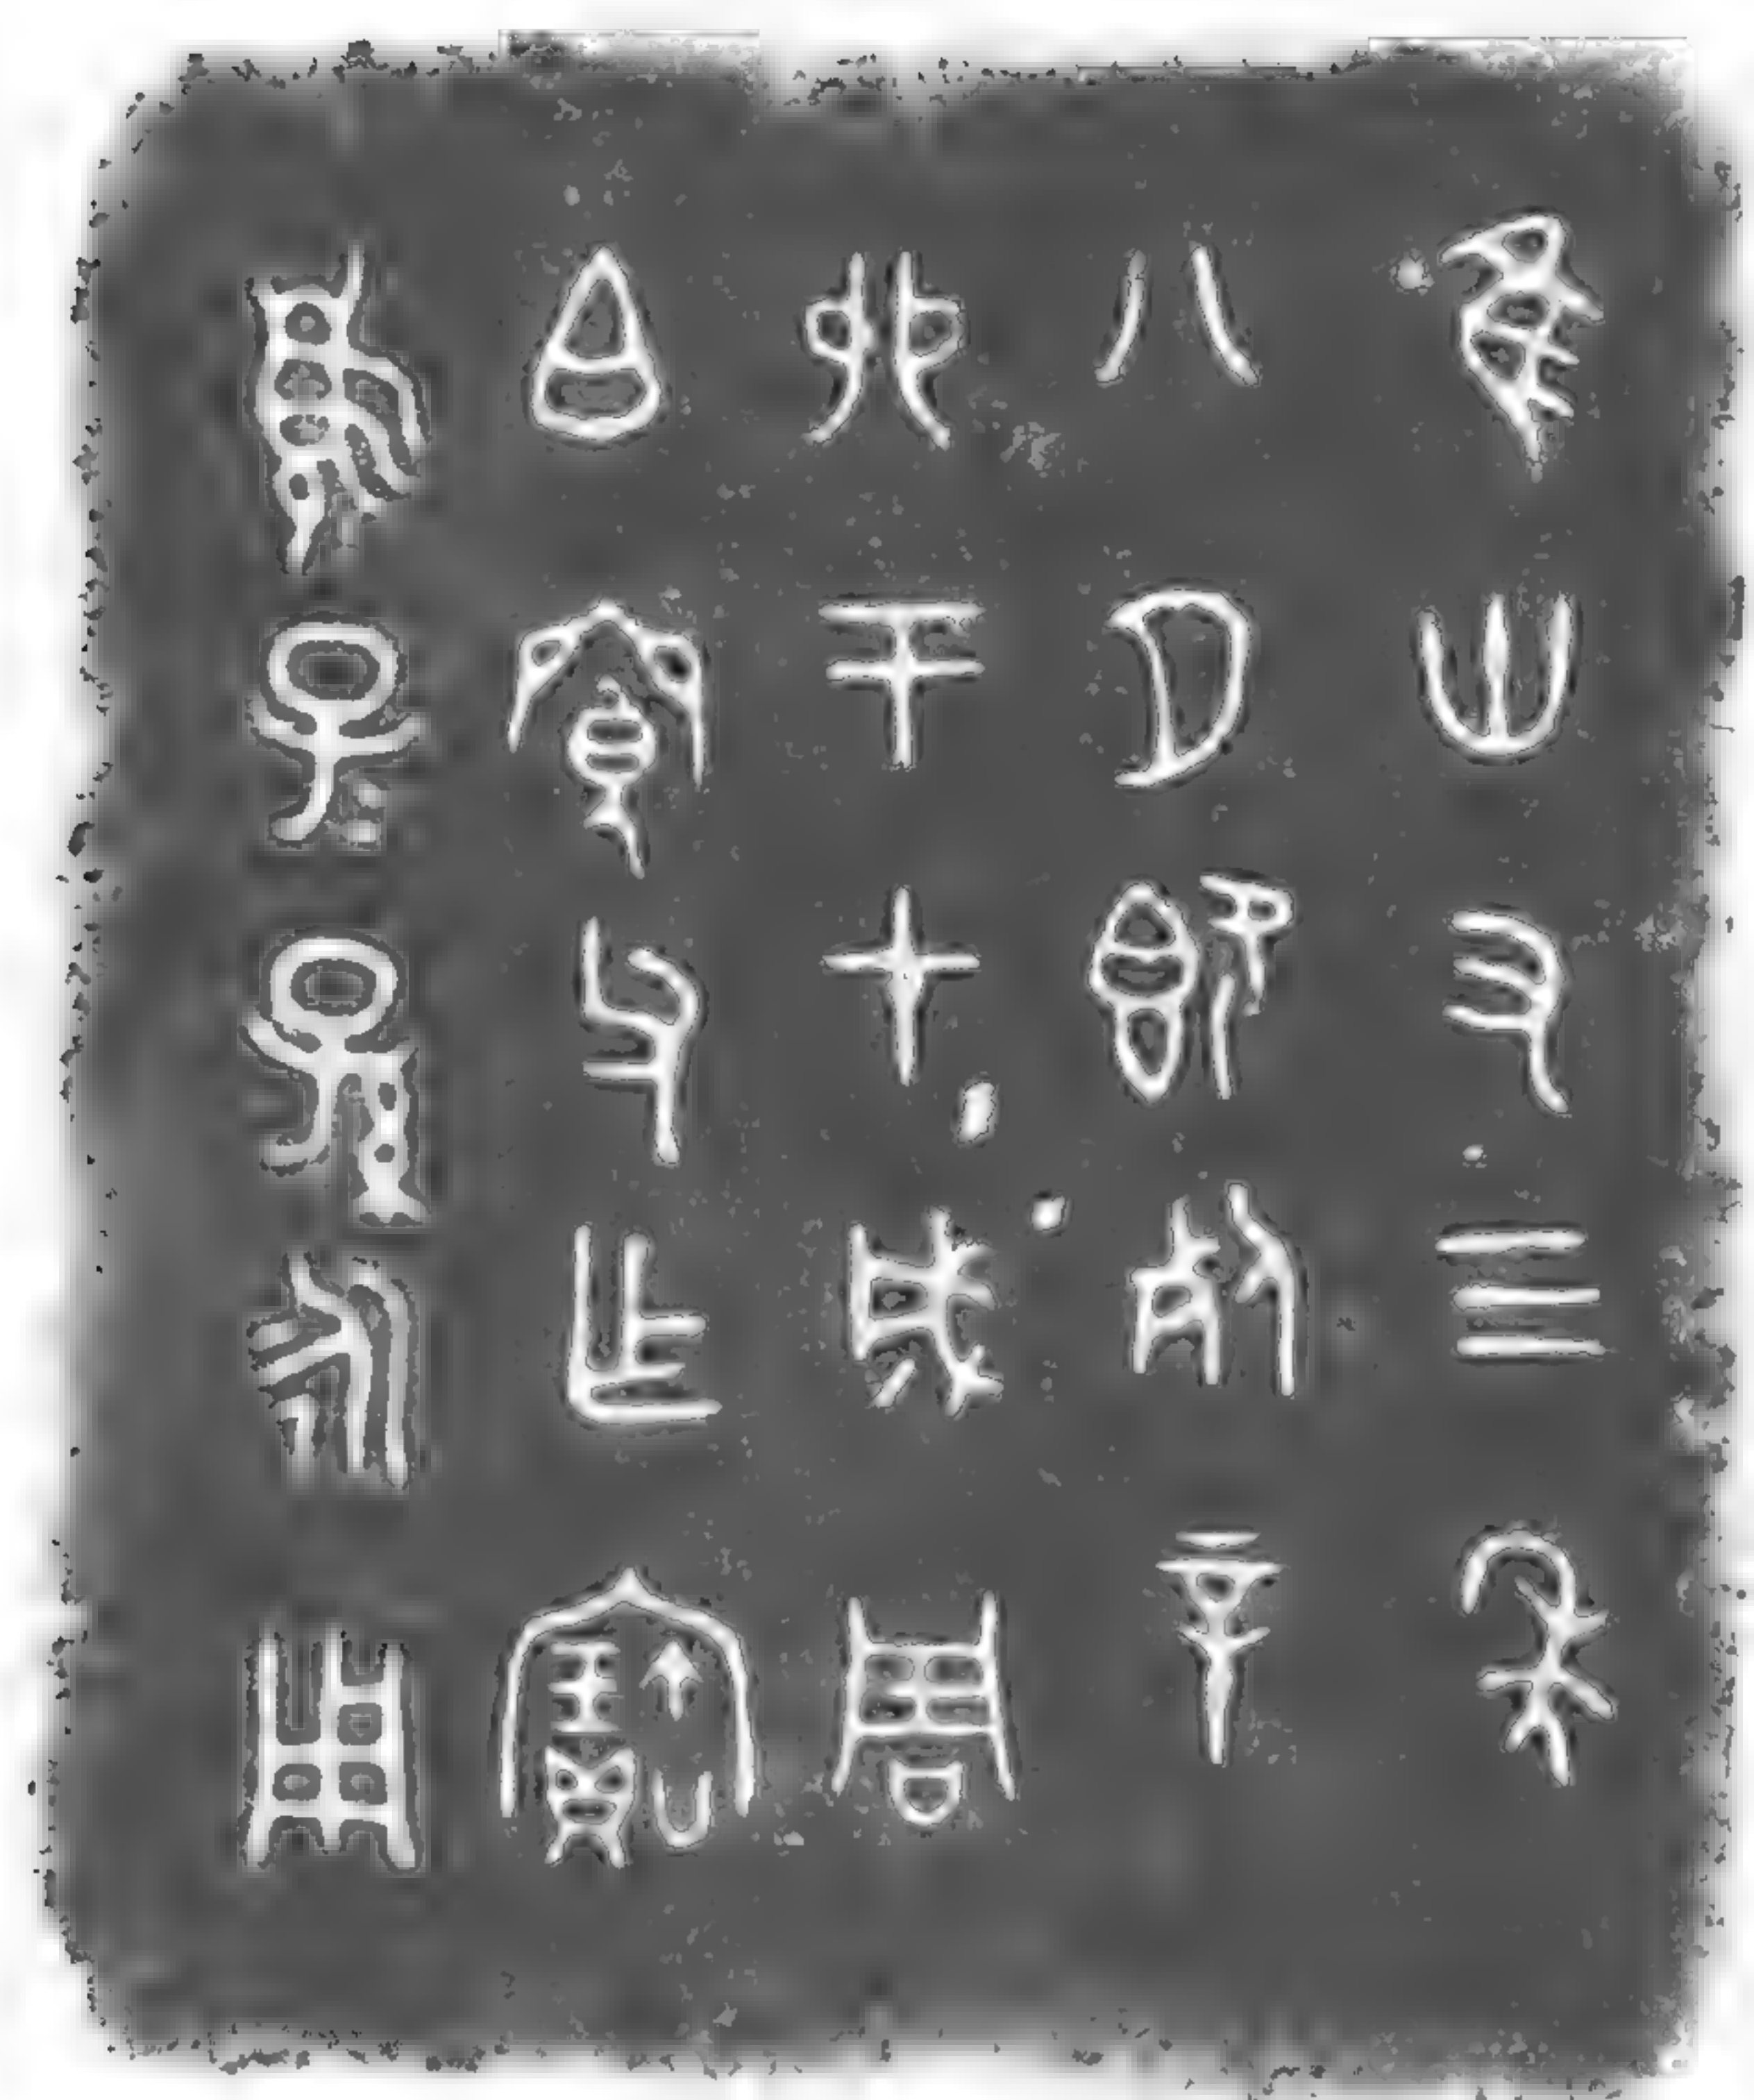 隹卅又三年
八月既死辛
卯王才成周
白寬父乍寶
盨子＝孫＝永用